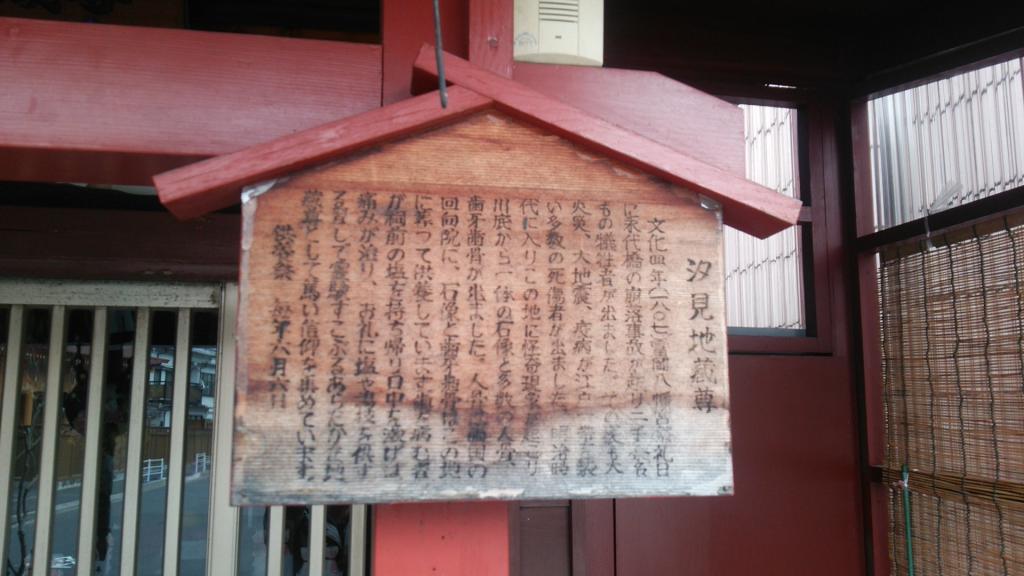 汐見地蔵尊
文化四年(一八〇七)富岡八幡宮祭礼日
に永代橋の崩落事故が起り二千余名
もの犠牲者が出ました。その後も大
火災、大地震、疫病が
い多数の死傷者が出ました。
代に入りこの地に
川底から一体の石像と多数の人骨、
歯牙歯骨が出ました。人骨は両国の
回向院に、石像と歯牙歯骨はこの地
に祀って供養しています。歯を病む者
が祠前の塩を持ち帰り口中を漱げば
痛みが治り、お礼に塩や
る習して霊験すこぶるあらたかな地
蔵尊にして篤い信仰を集めています
供養祭 毎年六月六日